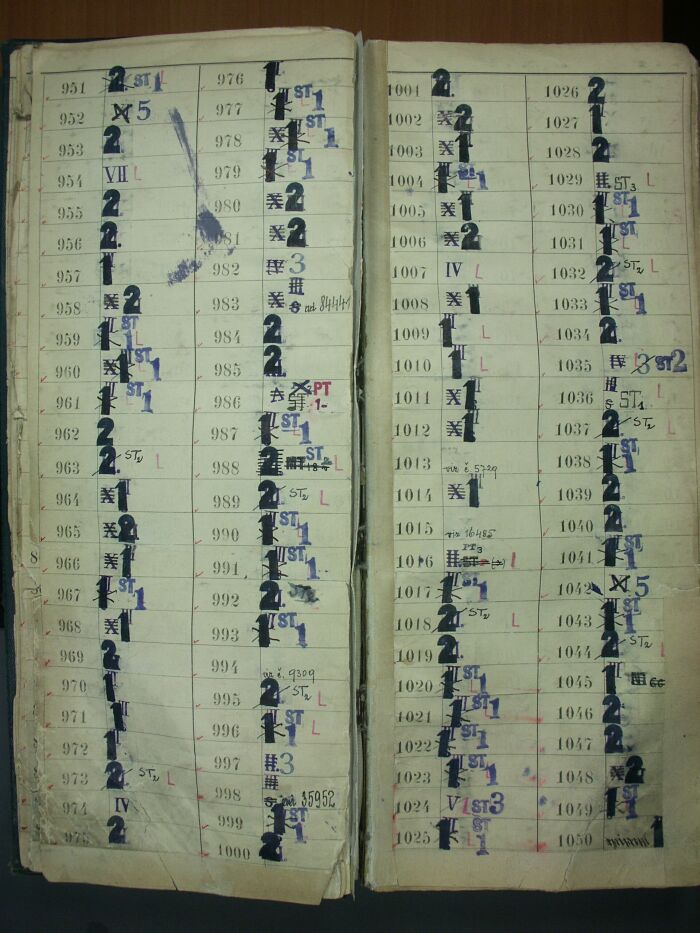 951 2 ST 1 L
952 X 5
953 2
954 VII L
955 2
956 2.
957 1
958 X 2
959 1 ST 1 L
960 X 1 ST 1 L
961 1 ST 1 L
962 2
963 2. ST2 L
964 X 1
965 X 2
966 X 1
967 1 ST 1
968 X 1
969 2
970 1
971 1
972 1
973 2. ST2 L
974 IV
975 2
976 1
977 1 ST 1 L
978 X 1 ST 1
979 1 ST 1 L
980 X 2
981 X 2
982 IV 3
983 X III 84441
984 2
985 2.
986 X PT
ST 1-
987 1 ST 1 L
988 2 L
989 2 ST2 L
990 1 ST 1
991 1 ST 1
992 2
993 1 ST 1 L
994 viz č. 9309
995 2 ST2 L
996 1 ST 1 L
997 II. 3
998 III 35952
999 1 ST 1
1000 2
1001 2.
1002 X 2
1003 X 1
1004 1 ST 1
1005 X 1
1006 X 2
1007 IV L
1008 X 1
1009 1 L
1010 1 L
1011 X 1
1012 X 1
1013 viz č. 5729
1014 X 1
1015 viz 16485
1016 II. PT3
1017 1 ST 1
1018 2 ST2 L
1019 2
1020 1 ST 1 L
1021 1 ST 1 L
1022 1 ST 1
1023 1 ST 1 L
1024 V L ST3
1025 1 ST 1 L
1026 2
1027 1
1028 2
1029 II. ST3 L
1030 1 ST 1 L
1031 1 ST L
1032 2 ST2 L
1033 1 ST 1
1034 2
1035 IV 3 ST2
1036 III ST1 L
1037 2. ST2 L
1038 1 ST 1
1039 2
1040 2
1041 1 ST 1
1042 X 5
1043 1 ST 1
1044 2 ST2 L
1045 1
1046 2
1047 2
1048 X 2
1049 1 ST 1
1050 1